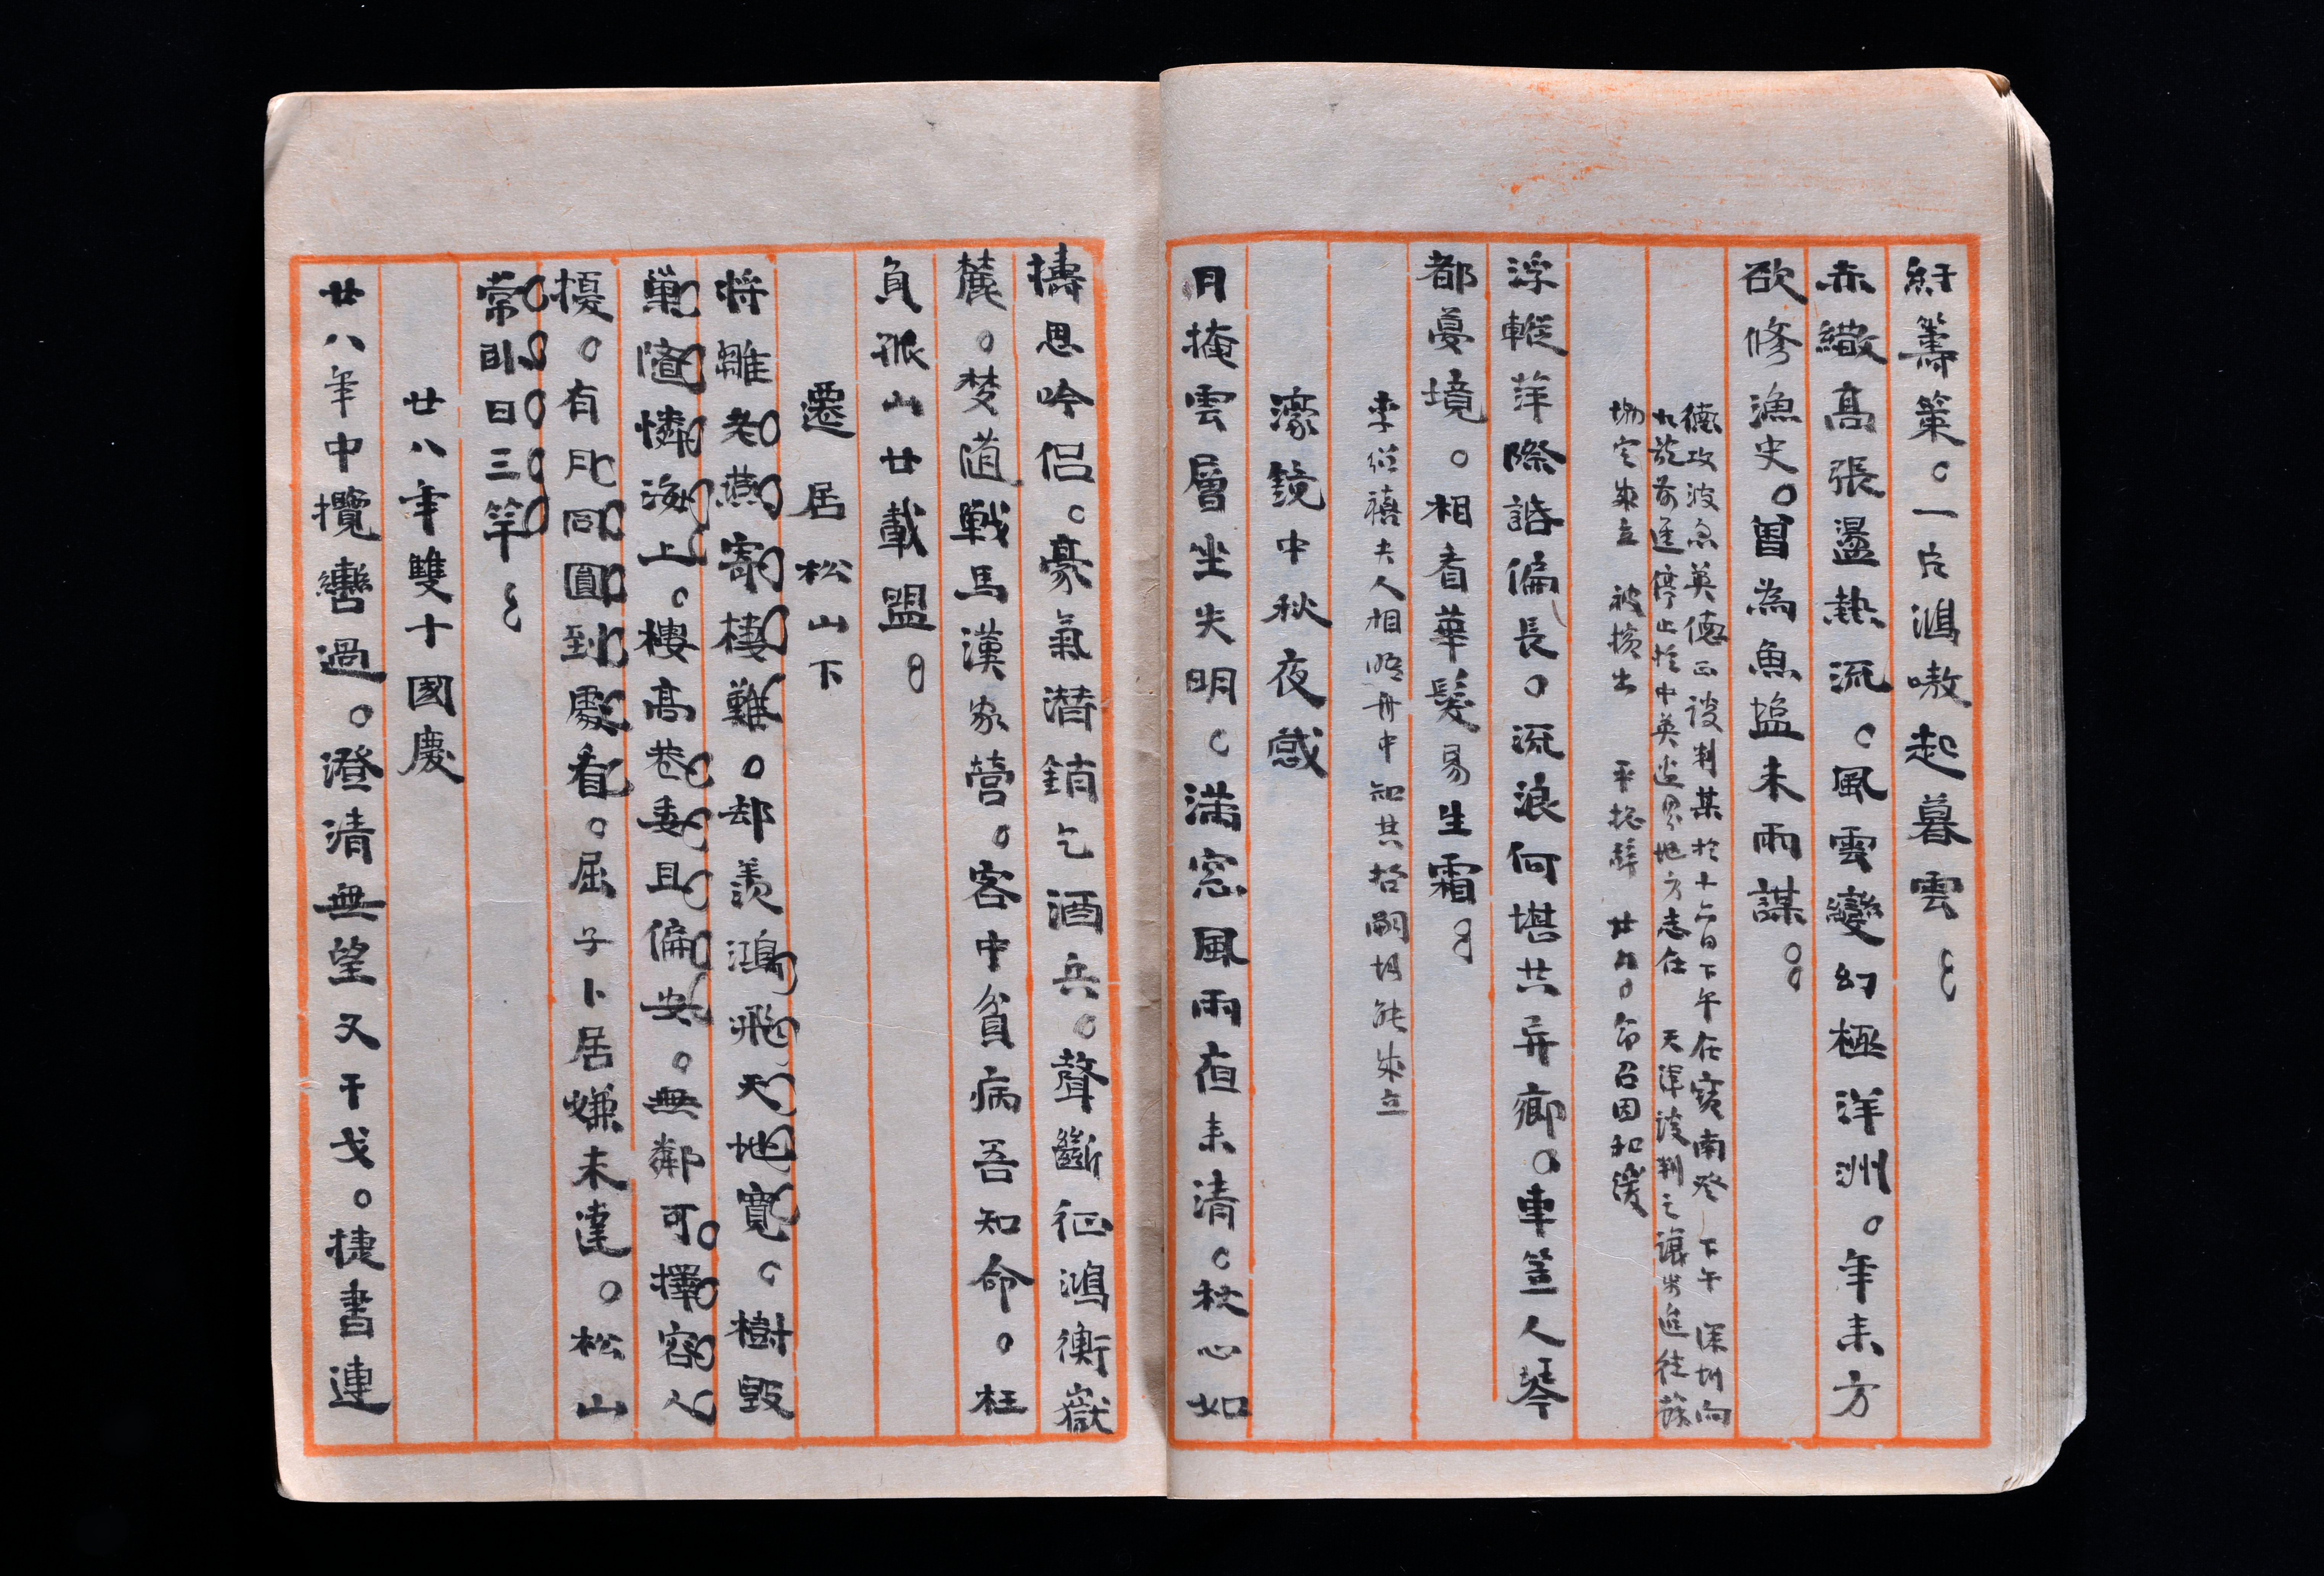 紆籌策。一片鴻嗷起暮雲
赤繖高張盪熱流。風雲變幻極洋洲。年來方
欲修漁史。曾為魚塩未雨謀。
德攻波急英德正談判某於十六日下午在寶南登 下午深圳向
九龍前進停止於中英邊界地方志在 天津談判之讓步迫往
被擯出 廿八
浮蹤萍際話偏長。流浪何堪共异鄉。車笠人琴
都夢境。相看華髮易生霜
夫人相晤舟中知其哲嗣均能成立
濠鏡中秋夜感
月掩雲層坐失明。滿窓風雨夜未清。秋心如
擣思吟侶。豪氣潛銷乞酒兵。聲斷征鴻衡嶽
麓。夢遒戰馬漢家營。客中貧病吾知命。枉
負孤山廿載盟。
遷居松山下
将雛老燕寄棲難。却羨鴻飛天地寬。樹毀
巢隨憐海上。樓高巷妻且偏安。無鄰可擇容人
擾。有月同圓到處看。屈子卜居嫌未達。松山
常即日三竿
廿八年雙十國慶
廿八年中攬轡過。澄清無望又干戈。捷書連